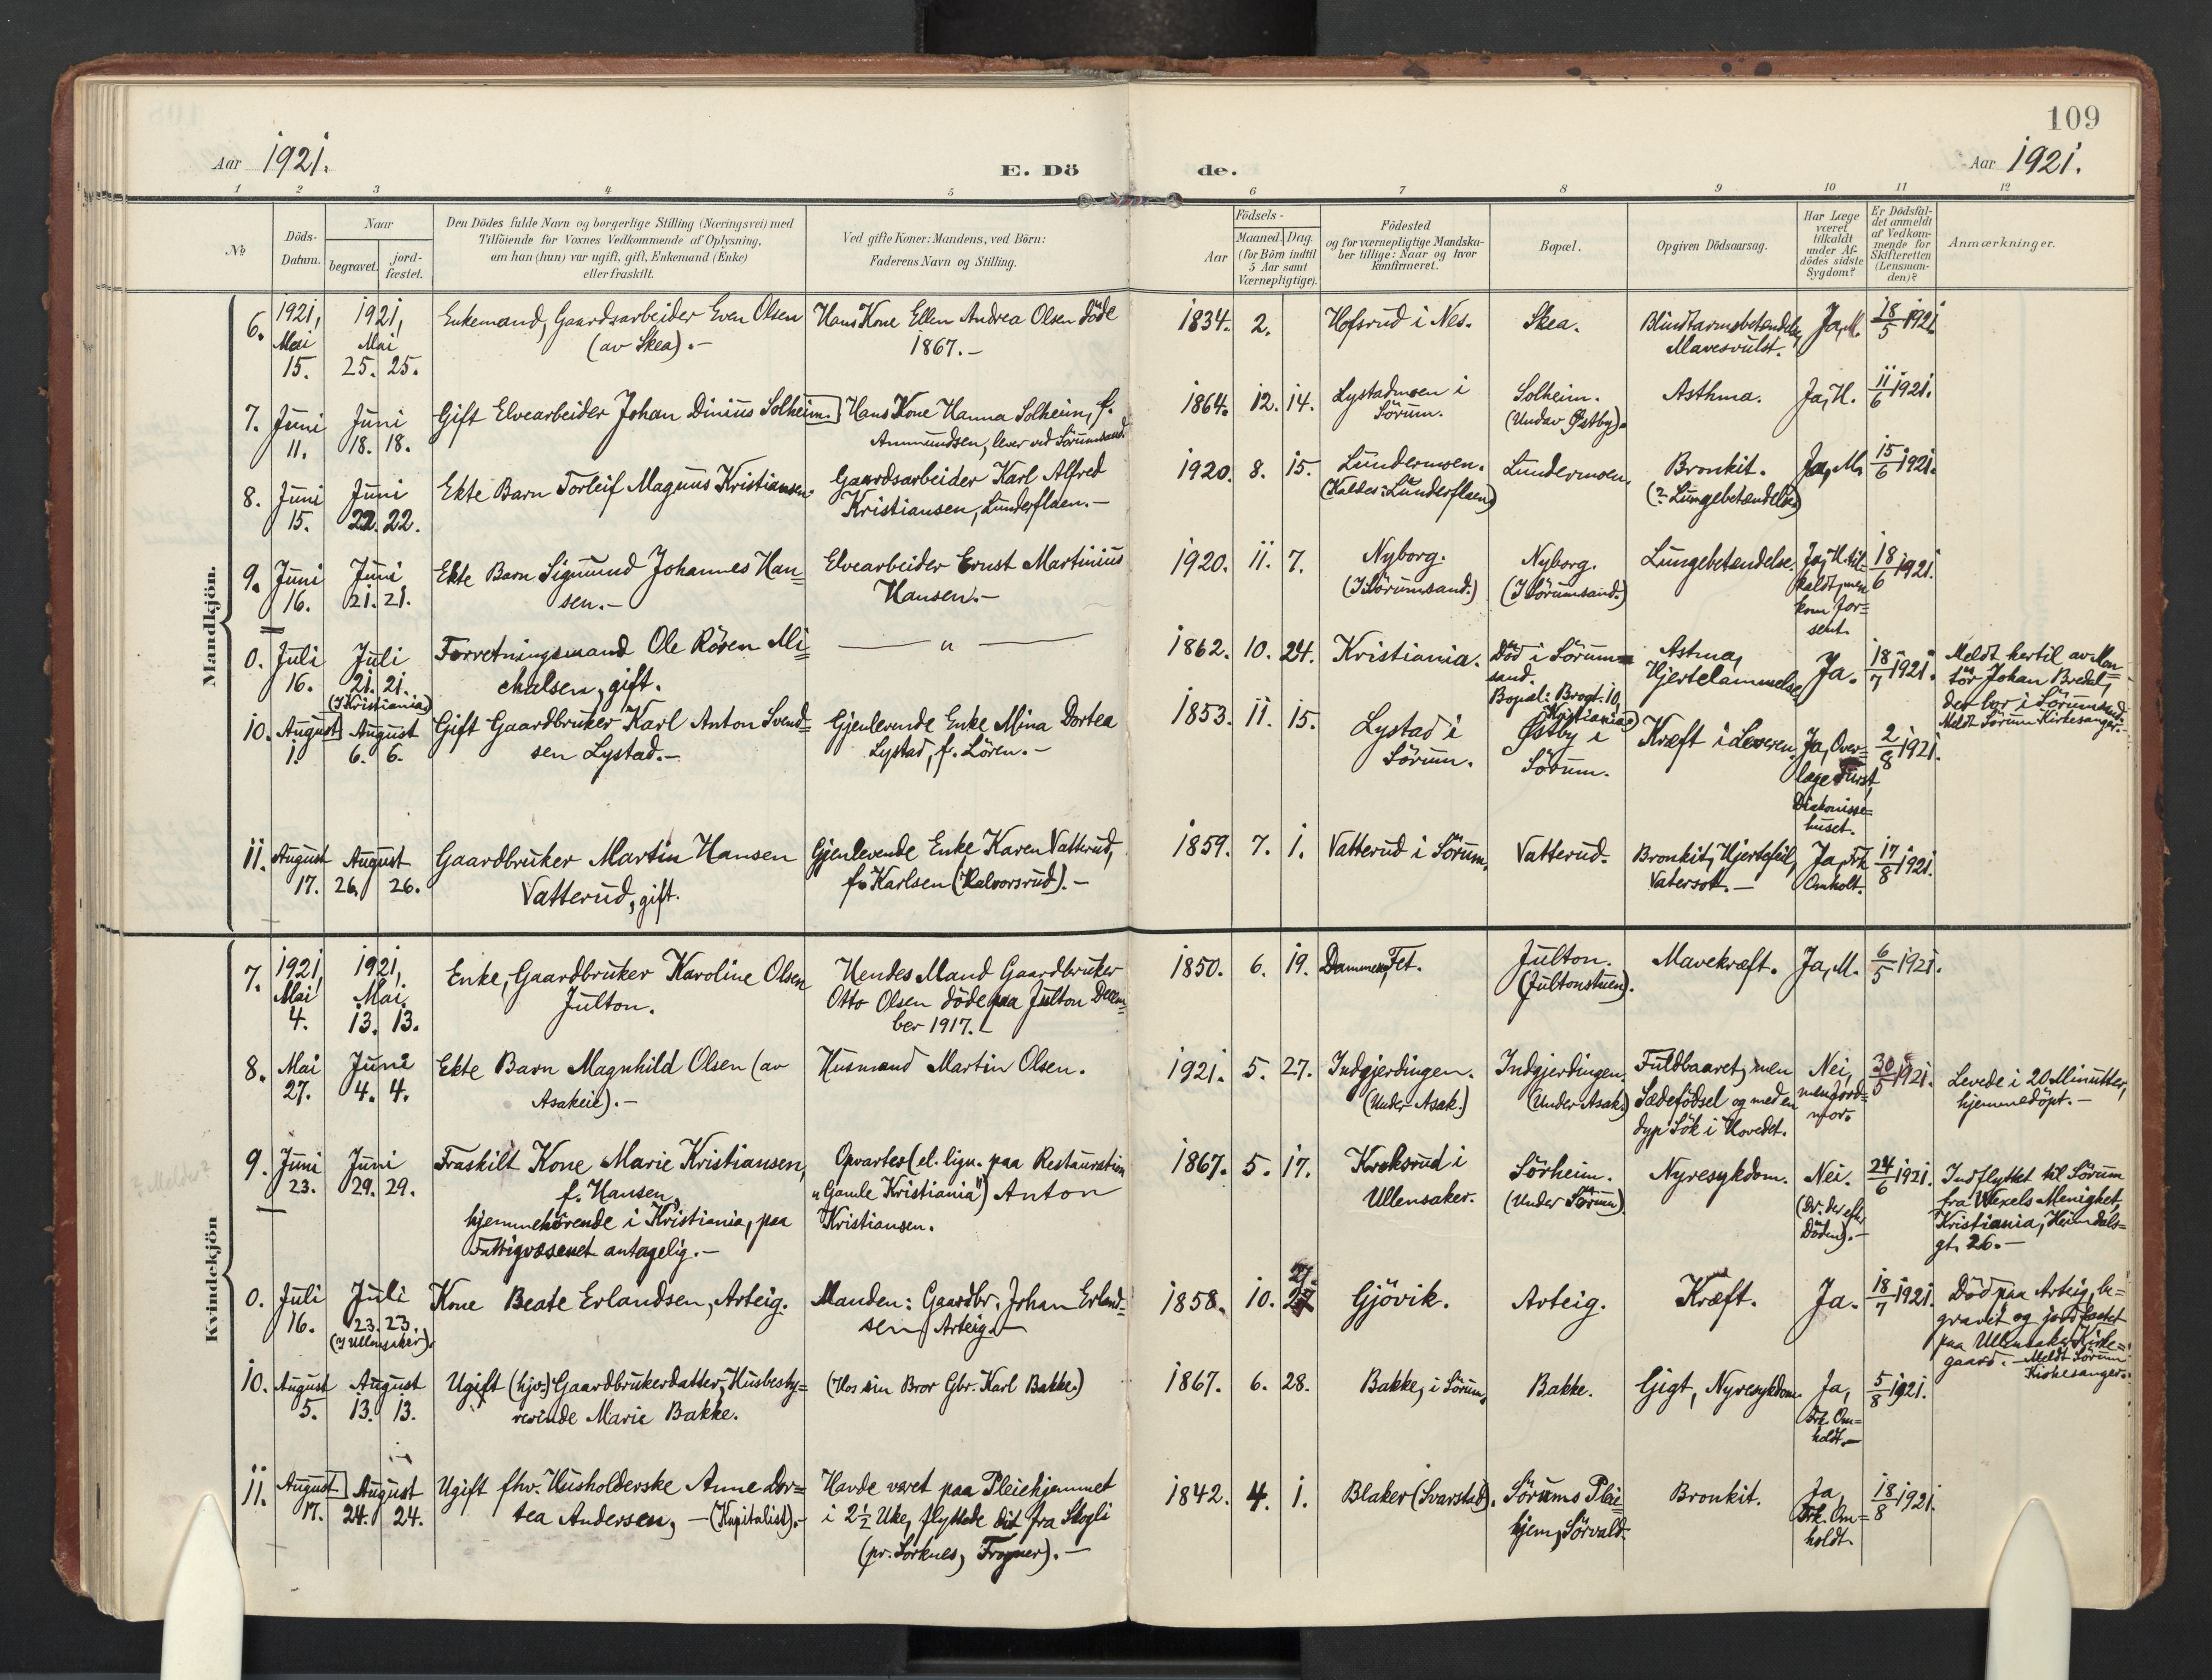 109
Aar 1921.
E. Döde.
Aar 1921.
1 2 3 4 5 6 7 8 9 10 11 12
№
Döds-
Datum.
Naar
begravet.
jord-
fæstet.
Den Dödes fulde Navn og borgerlige Stilling (Næringsvei) med
Tilföiende for Voxnes Vedkommende af Oplysning,
om han (hun) var ugift, gift, Enkemand (Enke)
eller fraskilt.
Ved gifte Koner: Mandens, ved Börn:
Faderens Navn og Stilling.
Födsels-
Aar
Maaned. Dag.
(for Börn indtil
5 Aar samt
Værnepligtige).
Födested
og for værnepligtige Mandska-
ber tillige: Naar og hvor
konfirmeret.
Bopæl.
Opgiven Dödsaarsag.
Har Læge
været
tilkaldt
under Af-
dödes sidste
Sygdom?
Er Dödsfal-
det anmeldt
af Vedkom-
mende for
Skifteretten
(Lensman-
den)?
Anmærkninger.
Mandkjön.
6. 1921, Mai 15.
1921, Mai 25. 25.
Enkemand, Gaardsarbeider Even Olsen
(av Skea).-
Hans Kone Ellen Andrea Olsen döde
1867.-
1834. 2.
Hofsrud i Nes.
Skea.
Blindtarmsbetændelse,
Mavesvulst.
Ja, M.
18/5 1921.
7. Juni 11.
Juni 18. 18.
Gift Elvearbeider Johan Dinius Solheim.
Hans Kone Hanna Solheim, f.
Ammundsen, lever ved Sörumsand.
1864. 12. 14.
Lystadmoen i
Sörum.
Solheim.
(Undav Østby).
Asthma.
Ja, H.
11/6 1921.
8. Juni 15.
Juni 22. 22.
Ekte Barn Torleif Magnus Kristiansen.
Gaardsarbeider Karl Alfred
Kristiansen, Lunderflaen.-
1920. 8. 15.
Lundermoen.
(Kaldes: Lunderflaen)
Lundermoen.
Bronkit.
(? Lungebetændelse)
Ja, M.
15/6 1921.
9. Juni 16.
Juni 21. 21.
Ekte Barn Sigmund Johannes Han=
sen.-
Elvearbeider Ernst Martinius
Hansen.-
1920. 11. 7.
Nyborg.
(I Sörumsand.)
Nyborg.
(I Sörumsand.)
Lungebetændelse.
Ja, H. til=
kaldt, men
kom for=
sent.
18/6 1921.
0. Juli 16.
Juli 21. 21.
(I Kristiania)
Forretningsmand Ole Rören Mi=
chalsen, gift.
— " —
1862. 10. 24.
Kristiania.
Död i Sörum=
sand.
Bopæl: Brogt. 10,
Kristiania)
Astma,
Hjertelammelse
Ja.
18/7 1921.
Meldt hertil av Mon=
tör Johan Bredal,
der bor i Sörumsand.
Meldt Sörum Kirkesanger.-
10. August 1.
August 6. 6.
Gift Gaardbruker Karl Anton Svend=
sen Lystad.-
Gjenlevende Enke Mina Dortea
Lystad, f. Lören.-
1853. 11. 15.
Lystad i
Sörum.
Østby i
Sörum.
Kræft i Leveren.
Ja, Over=
læge Fürst,
Diakonisse=
huset.
2/8 1921.
11. August 17.
August 26. 26.
Gaardbruker Martin Hansen
Vatterud, gift.
Gjenlevende Enke Karen Vatterud,
f. Karlsen (Halvorsrud).-
1859. 7. 1.
Vatterud i Sörum.
Vatterud.
Bronkit, Hjertefeil,
Vatersot.-
Ja, Frk.
Omholt.
17/8 1921.
Kvindekjön
7. 1921, Mai 4.
1921, Mai 13. 13.
Enke, Gaardbruker Karoline Olsen
Julton.
Hendes Mand Gaardbruker
Otto Olsen döde paa Julton Decem=
ber 1917.
1850. 6. 19.
Dammen, Fet.
Julton.
(Jultonstuen).
Mavekræft.
Ja, M.
6/5 1921.
8. Mai 27.
Juni 4. 4.
Ekte Barn Magnhild Olsen (av
Asakeie).-
Husmand Martin Olsen.
1921. 5. 27.
Indgjerdingen.
(Under Asak.)
Indgjerdingen.
(Under Asak.)
Fuldbaaret, men
Sædefödsel og med en
dyp Sök i Hovedet.
Nei,
men Jord=
mor.
30/5 1921.
Levede i 20 Minutter,
hjemmedöpt.-
? Meldes?
9. Juni 23.
Juni 29. 29.
Fraskilt Kone Marie Kristiansen,
f. Hansen,
hjemmehörende i Kristiania, paa
Fattigvæsenet antagelig.-
Opvarter (el. lign. paa Restauration
"Gamle Kristiania") Anton
Kristiansen.
1867. 5. 17.
Kroksrud i
Ullensaker.
Sörheim.
(Under Sörum)
Nyresykdom.
Nei.
(Dr. der efter
Döden).-
24/6 1921.
Indflyttet til Sörum
fra Wexels Menighet,
Kristiania, Heimdals=
gt. 26.-
0. Juli 16.
Juli 23. 23.
(I Ullensaker).
Kone Beate Erlandsen, Arteig.
Manden: Gaardbr. Johan Erland=
sen Arteig.-
1858. 10. 27.
Gjövik.
Arteig.
Kræft.
Ja.
18/7 1921.
Död paa Arteig, be=
gravet og jordfæstet
paa Ullensaker Kirke=
gaard.- Meldt Sörum
Kirkesanger.
10. August 5.
August 13. 13.
Ugift (hjv.) Gaardbrukerdatter, Husbesty=
rerinde Marie Bakke.
(Hos sin Bror Gbr. Karl Bakke.)
1867. 6. 28.
Bakke, i Sörum.
Bakke.
Gigt, Nyresykdom.
Ja,
Frk. Om=
holdt.-
5/8 1921.
11. August 17.
August 24. 24.
Ugift fhv. Husholderske Anne Dor=
tea Andersen, -(Kapitalist).-
Havde været paa Pleiehjemmet
i 2½ Uke, flyttede dit fra Skogli
(pr. Sorknes, Frogner).-
1842. 4. 1.
Blaker (Svarstad).
Sörums Plei=
hjem, Sörvald.
Bronkit.
Ja,
Frk. Om=
holdt.
18/8 1921.